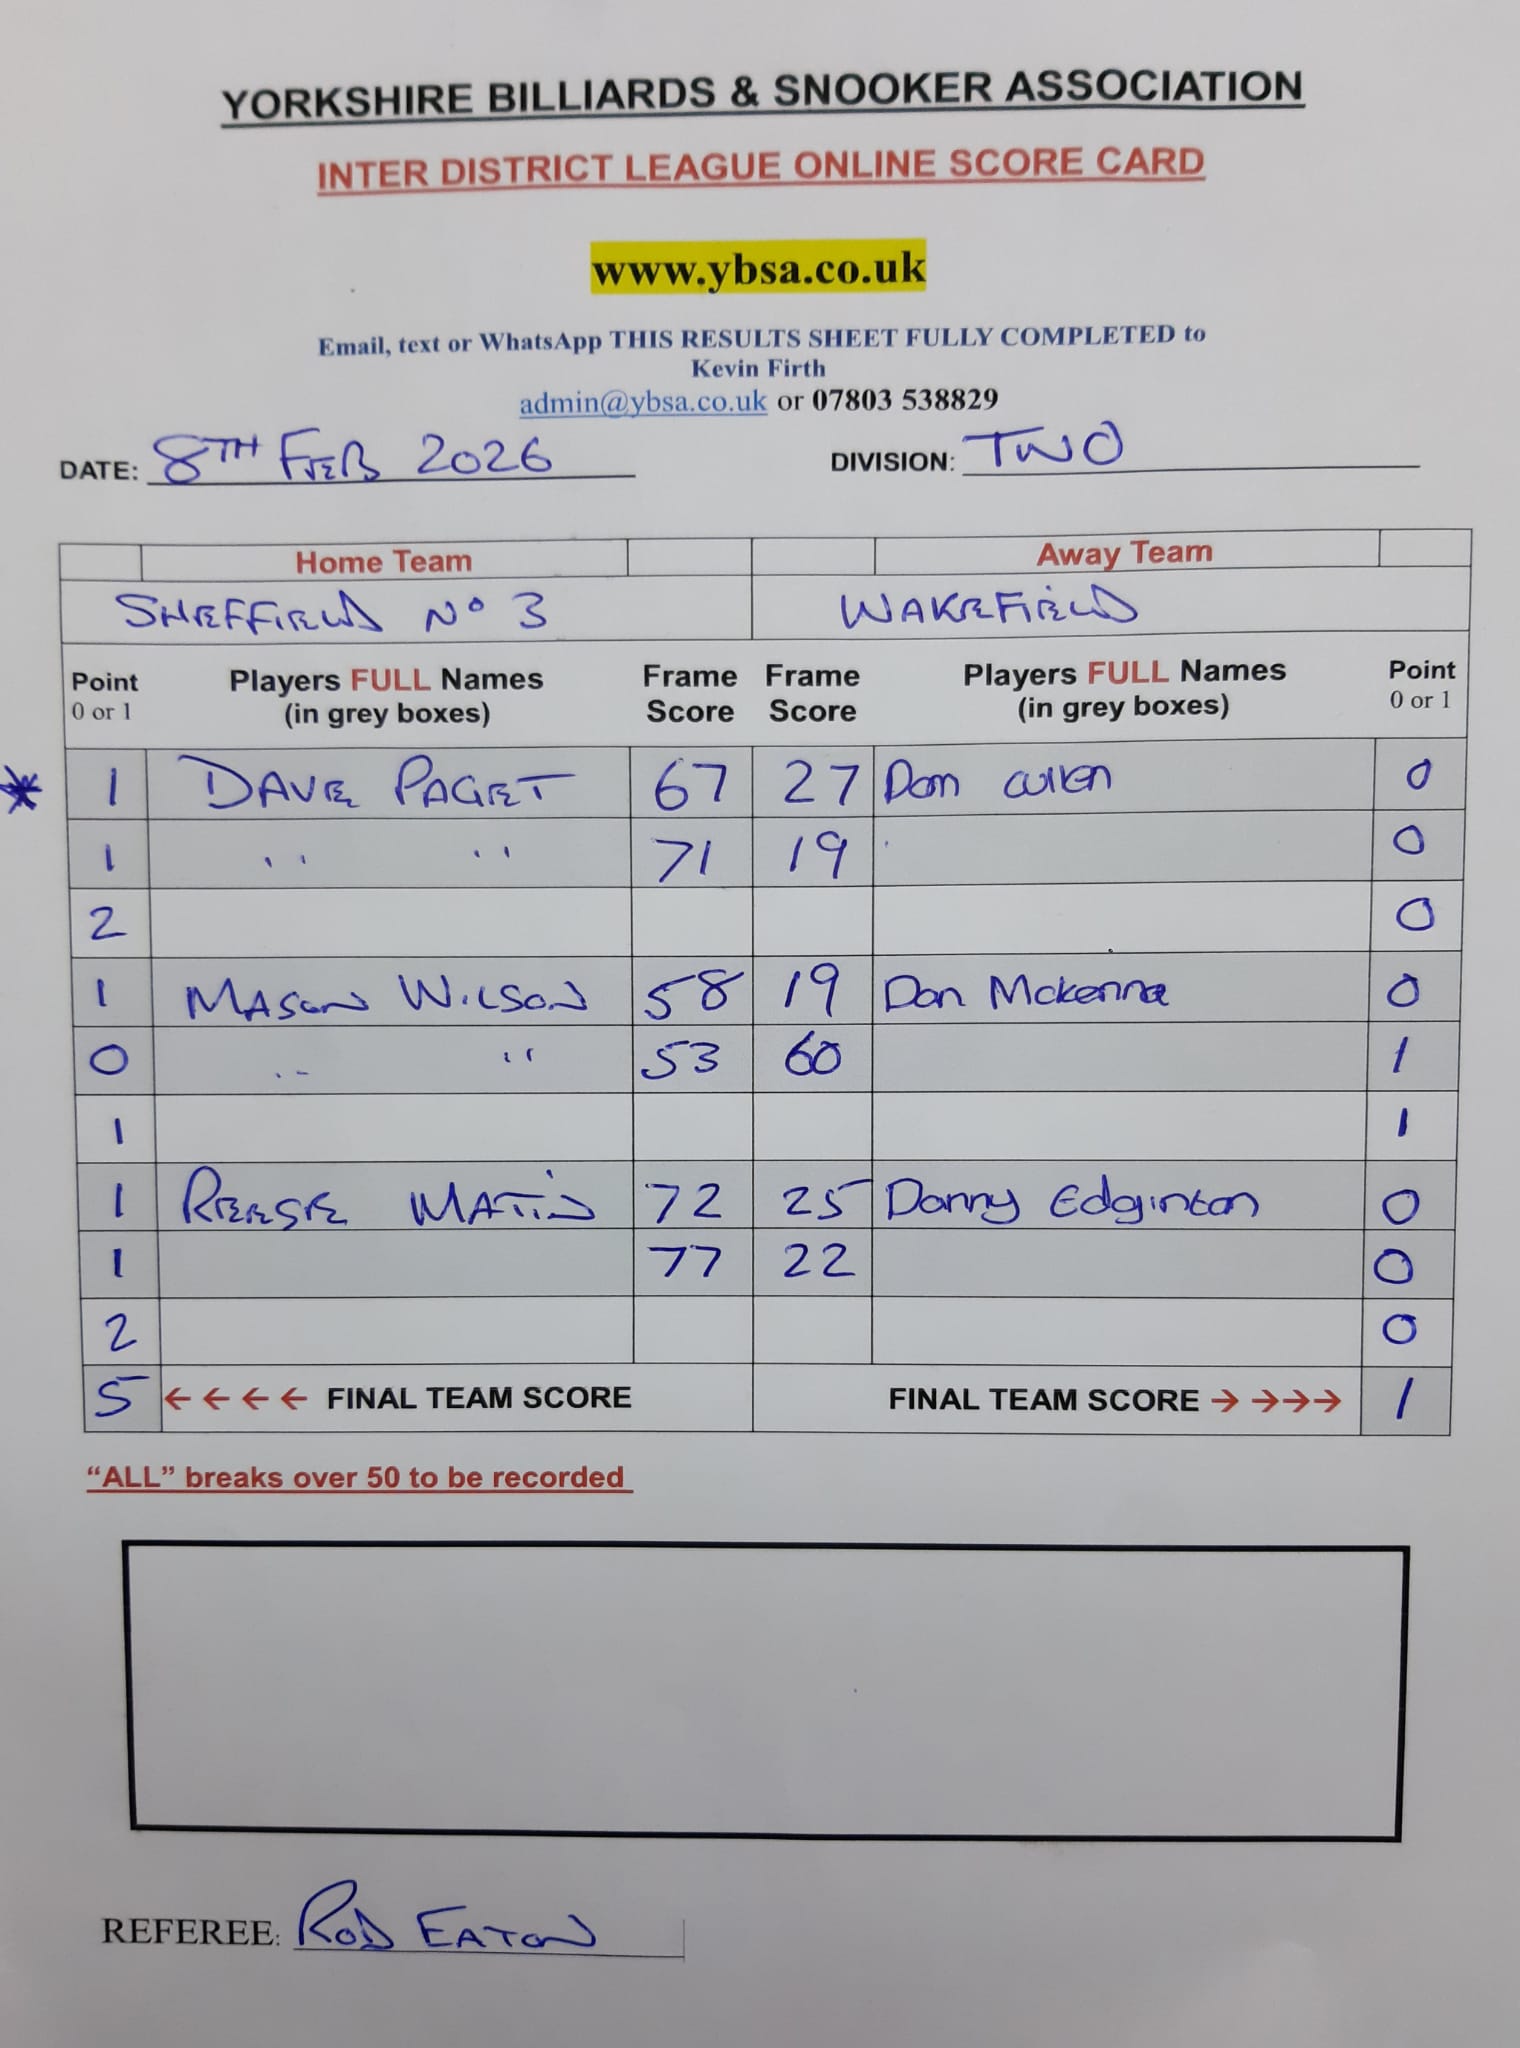 YORKSHIRE BILLIARDS & SNOOKER ASSOCIATION
INTER DISTRICT LEAGUE ONLINE SCORE CARD
www.ybsa.co.uk
Email, text or WhatsApp THIS RESULTS SHEET FULLY COMPLETED to
Kevin Firth
admin@ybsa.co.uk or 07803 538829
DATE: 8TH FEB 2026 DIVISION: TWO
Home Team Away Team
SHEFFIELD No 3 WAKEFIELD
Point 0 or 1 Players FULL Names (in grey boxes) Frame Score Frame Score Players FULL Names (in grey boxes) Point 0 or 1
* 1 DAVE PAGET 67 27 Dom Cullen 0
1 " " 71 19 0
2 0
1 MASON WILSON 58 19 Dan Mckenna 0
0 " " 53 60 1
1 1
1 REESE MATIN 72 25 Danny Edginton 0
1 77 22 0
2 0
5 ←←←← FINAL TEAM SCORE FINAL TEAM SCORE → →→→ 1
“ALL” breaks over 50 to be recorded
REFEREE: ROD EATON